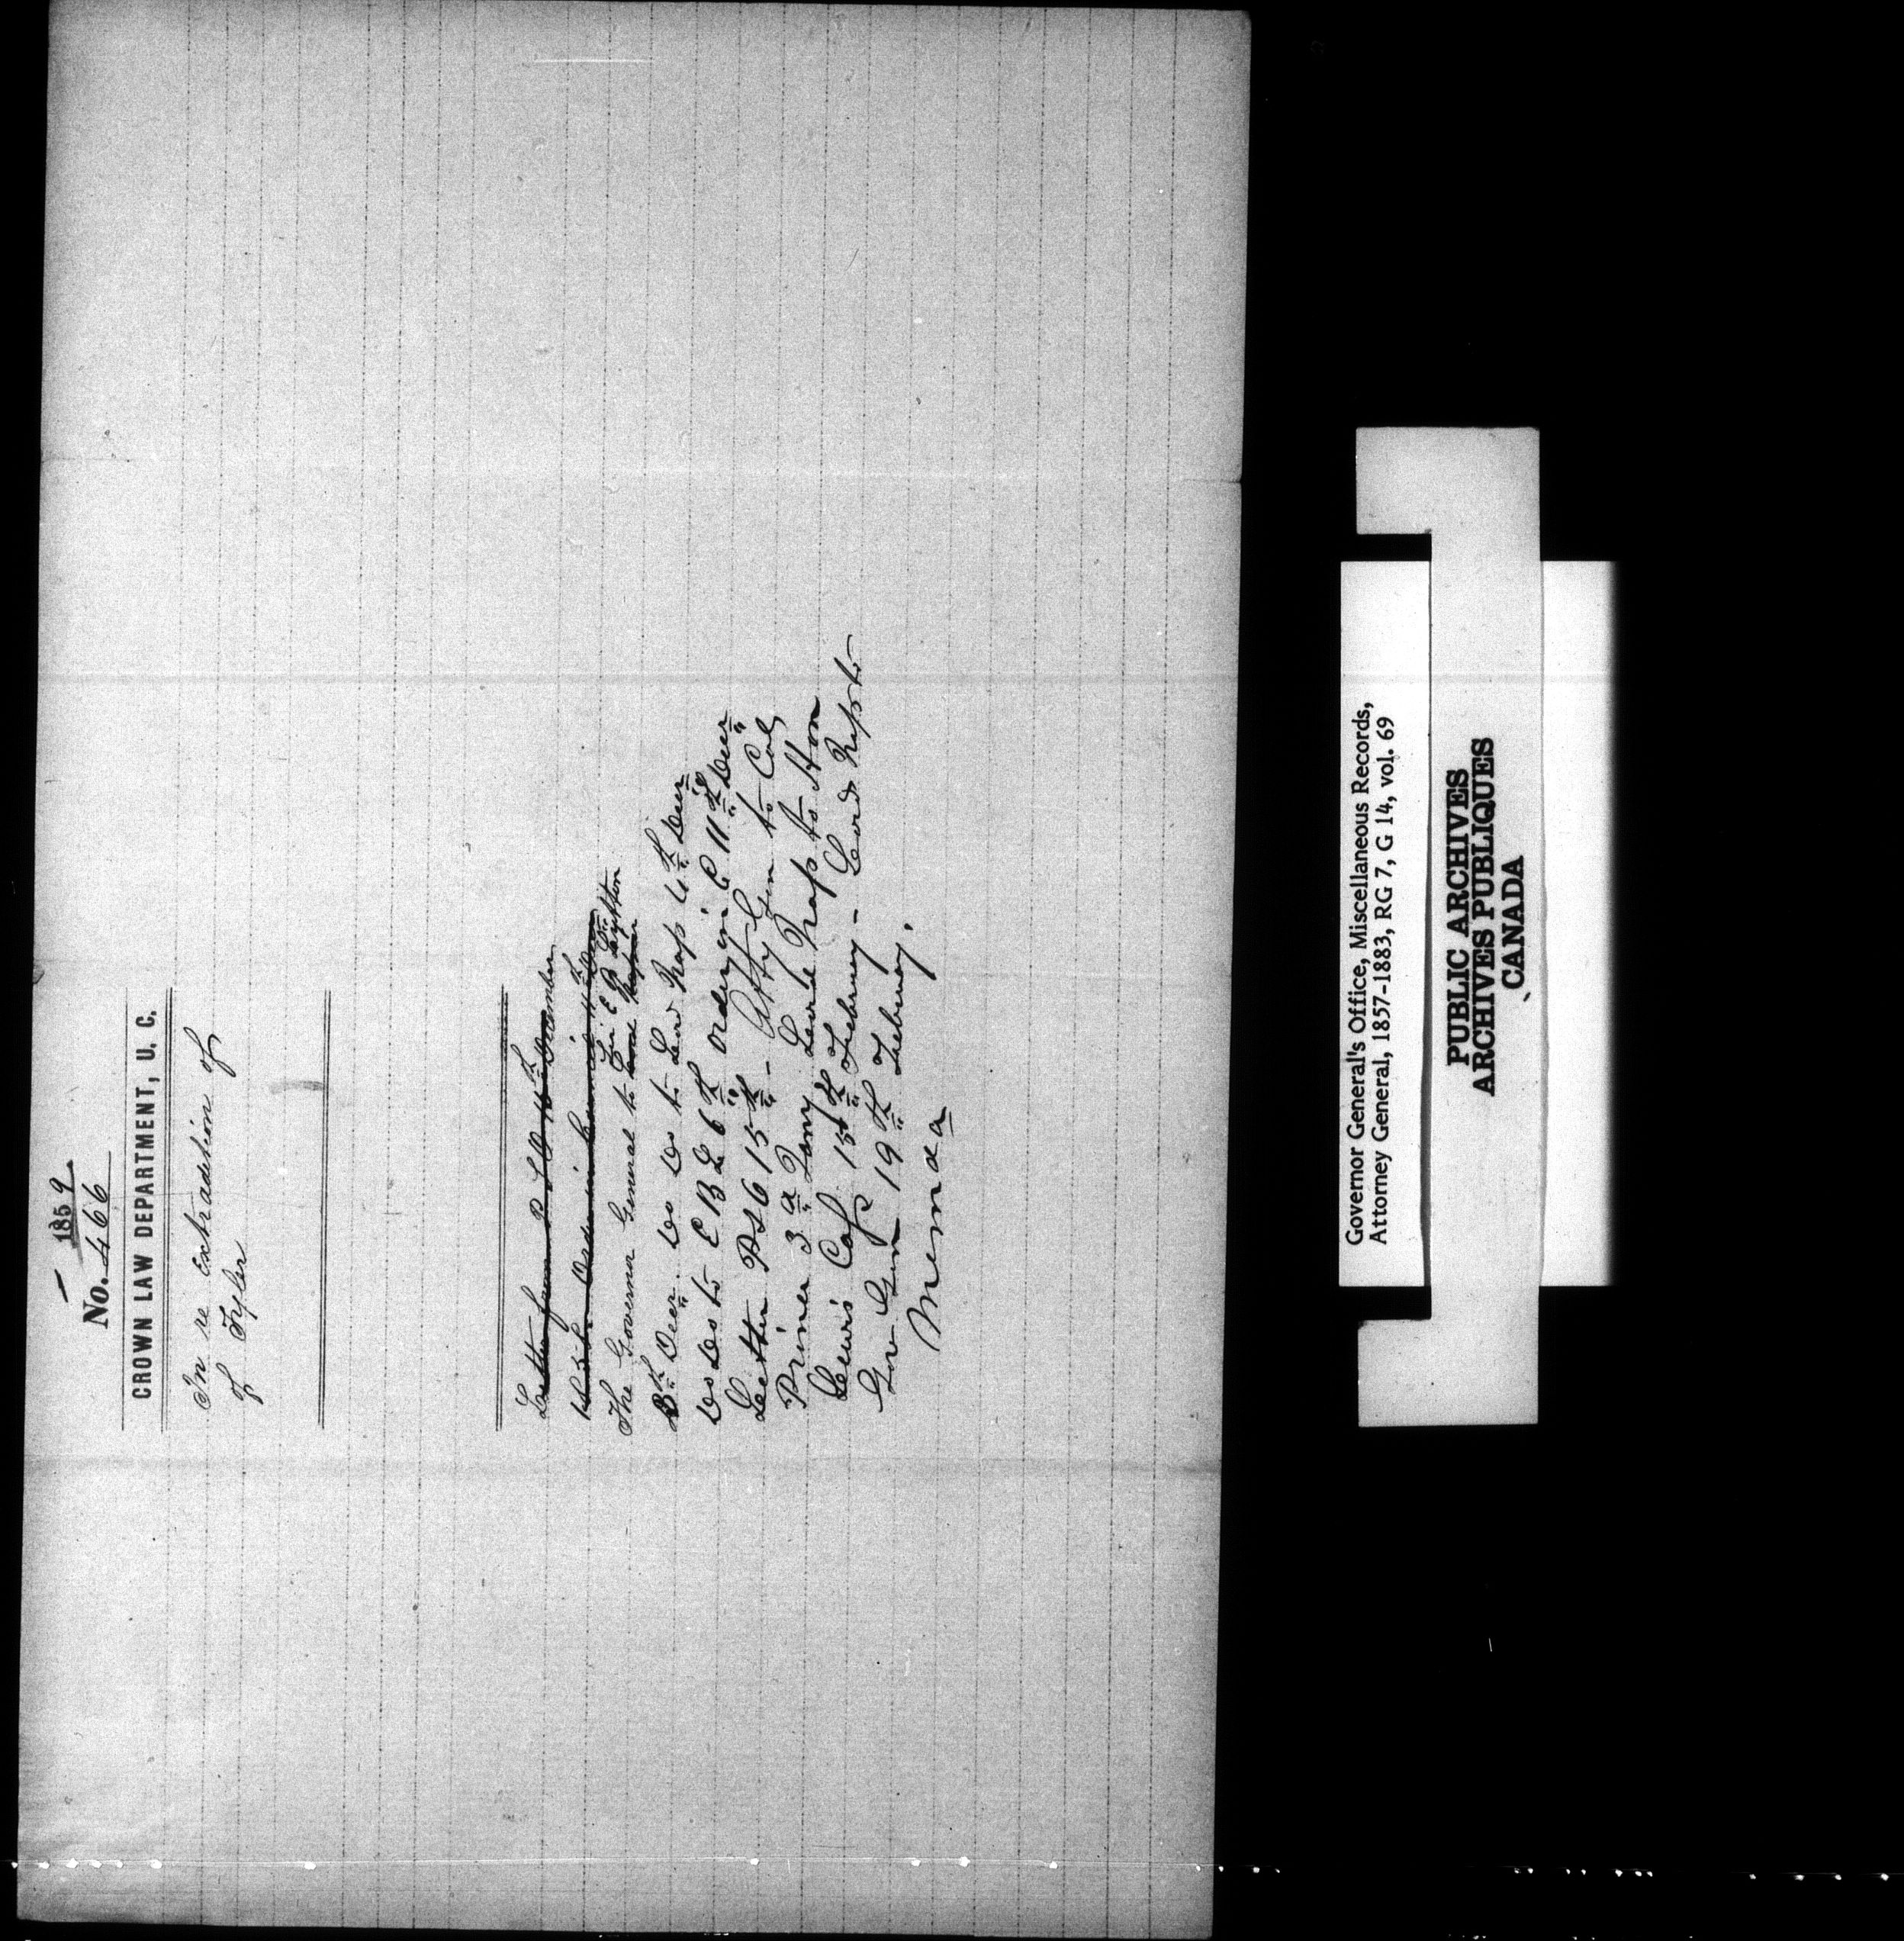 1859
No. 466
CROWN LAW DEPARTMENT, U. C.
In re Extradition of
of Tyler
Letter from P S O 11th December
The Governor General to Sir E B Lytton
8th Decr. Do Do to Lord Nap 6th Decr
Do Do to E B L 6th Order in C 11th Decr
Letter PSG 15th - Atty Gen to Col
Primer 3d Jany Lord Nap to Hon
Lewis Cass 15th February - Lord Nap to
Gov Gen 19th February.
Memda
Governor General's Office, Miscellaneous Records,
Attorney General, 1857-1883, RG 7, G 14, vol. 69
PUBLIC ARCHIVES
ARCHIVES PUBLIQUES
CANADA